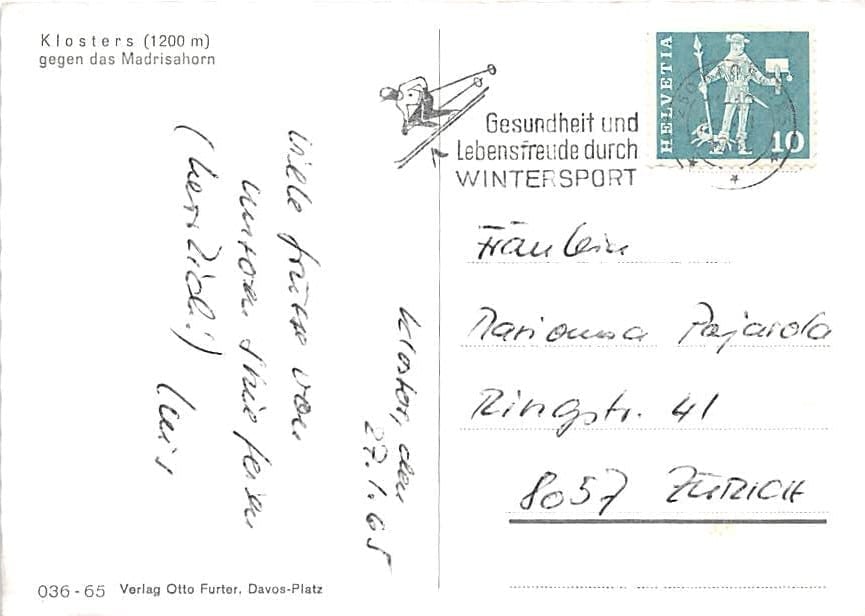 Klosters (1200 m)
gegen das Madrisahorn
Gesundheit und
Lebensfreude durch
WINTERSPORT
HELVETIA
10
Kloster, den
27.1.65
viele Grüsse von
unseren Skiferien
(herrlich!)
Luis
Fräulein
Marionna Pajarola
Ringstr. 41
8057 ZÜRICH
036 - 65 Verlag Otto Furter, Davos-Platz